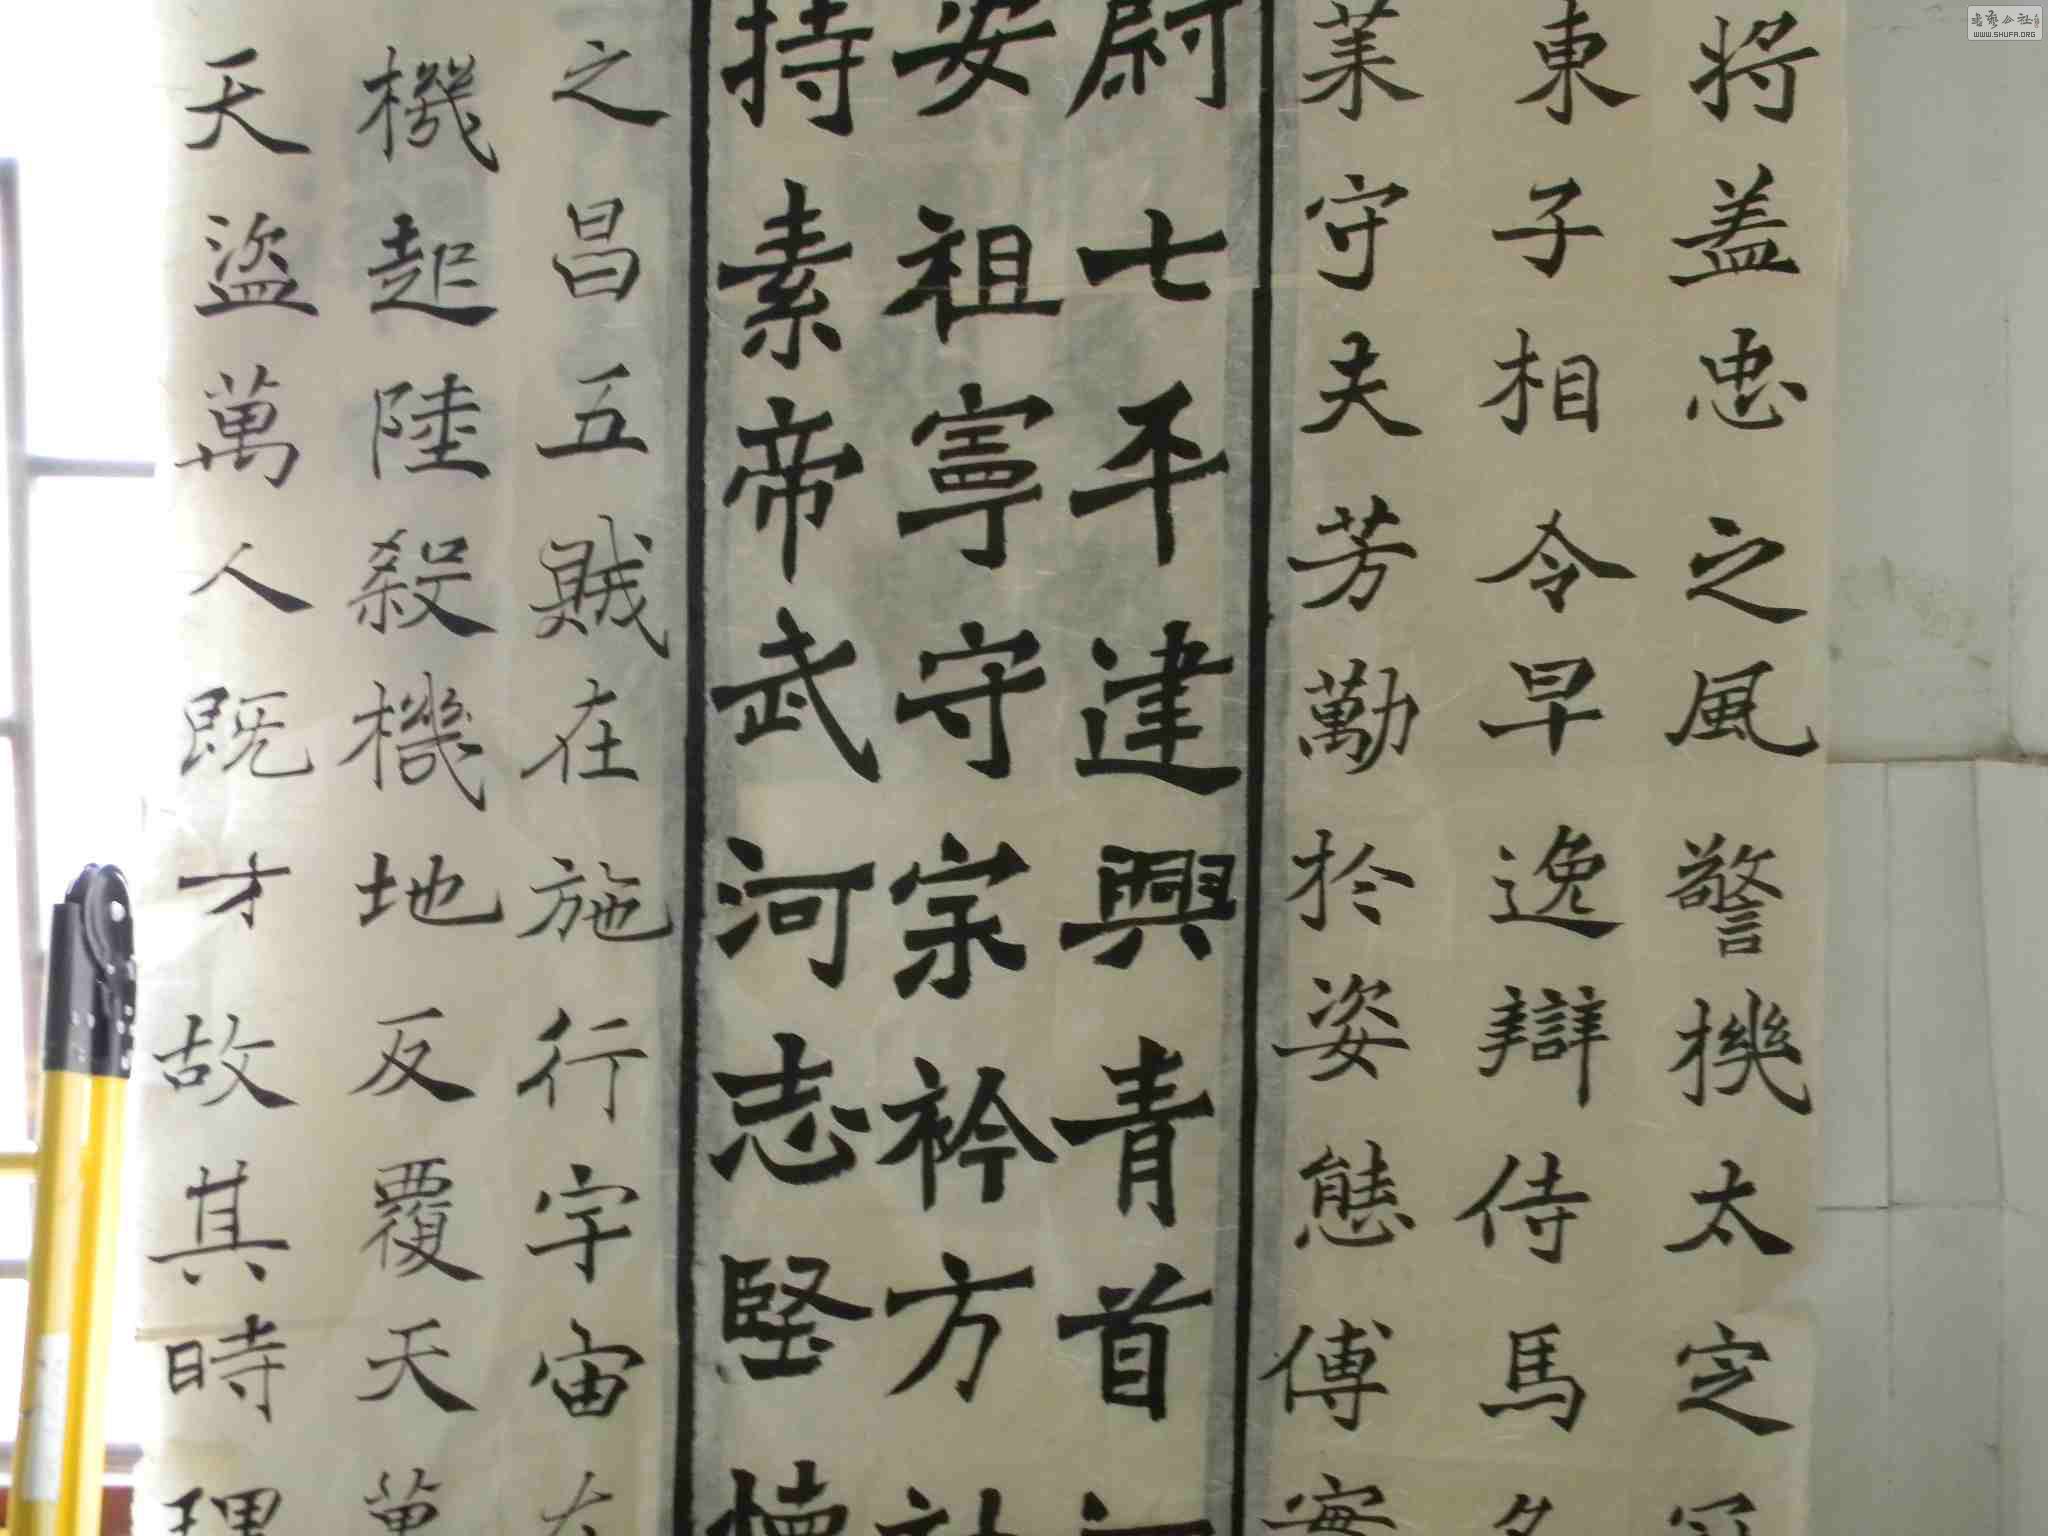 将盖忠之風警機太定
東子相令早逸辯侍馬
茉守夫芳勱於姿態傅
尉七平建興青首
安祖寧守宗衿方
持素帝武河志堅
之昌五賊在施行宇宙在
機起陸殺機地反覆天萬
天盜萬人既才故其時理
WWW.SHUFA.ORG